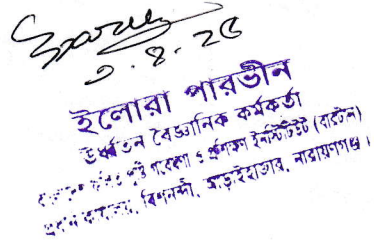 ৩.৪.২৫
ইলোরা পারভীন
উর্ধ্বতন বৈজ্ঞানিক কর্মকর্তা
পুষ্টি গবেষণা ও প্রশিক্ষণ ইনস্টিটিউট (বারটান)
প্রধান কার্যালয়, বিশনন্দী, আড়াইহাজার, নারায়ণগঞ্জ।